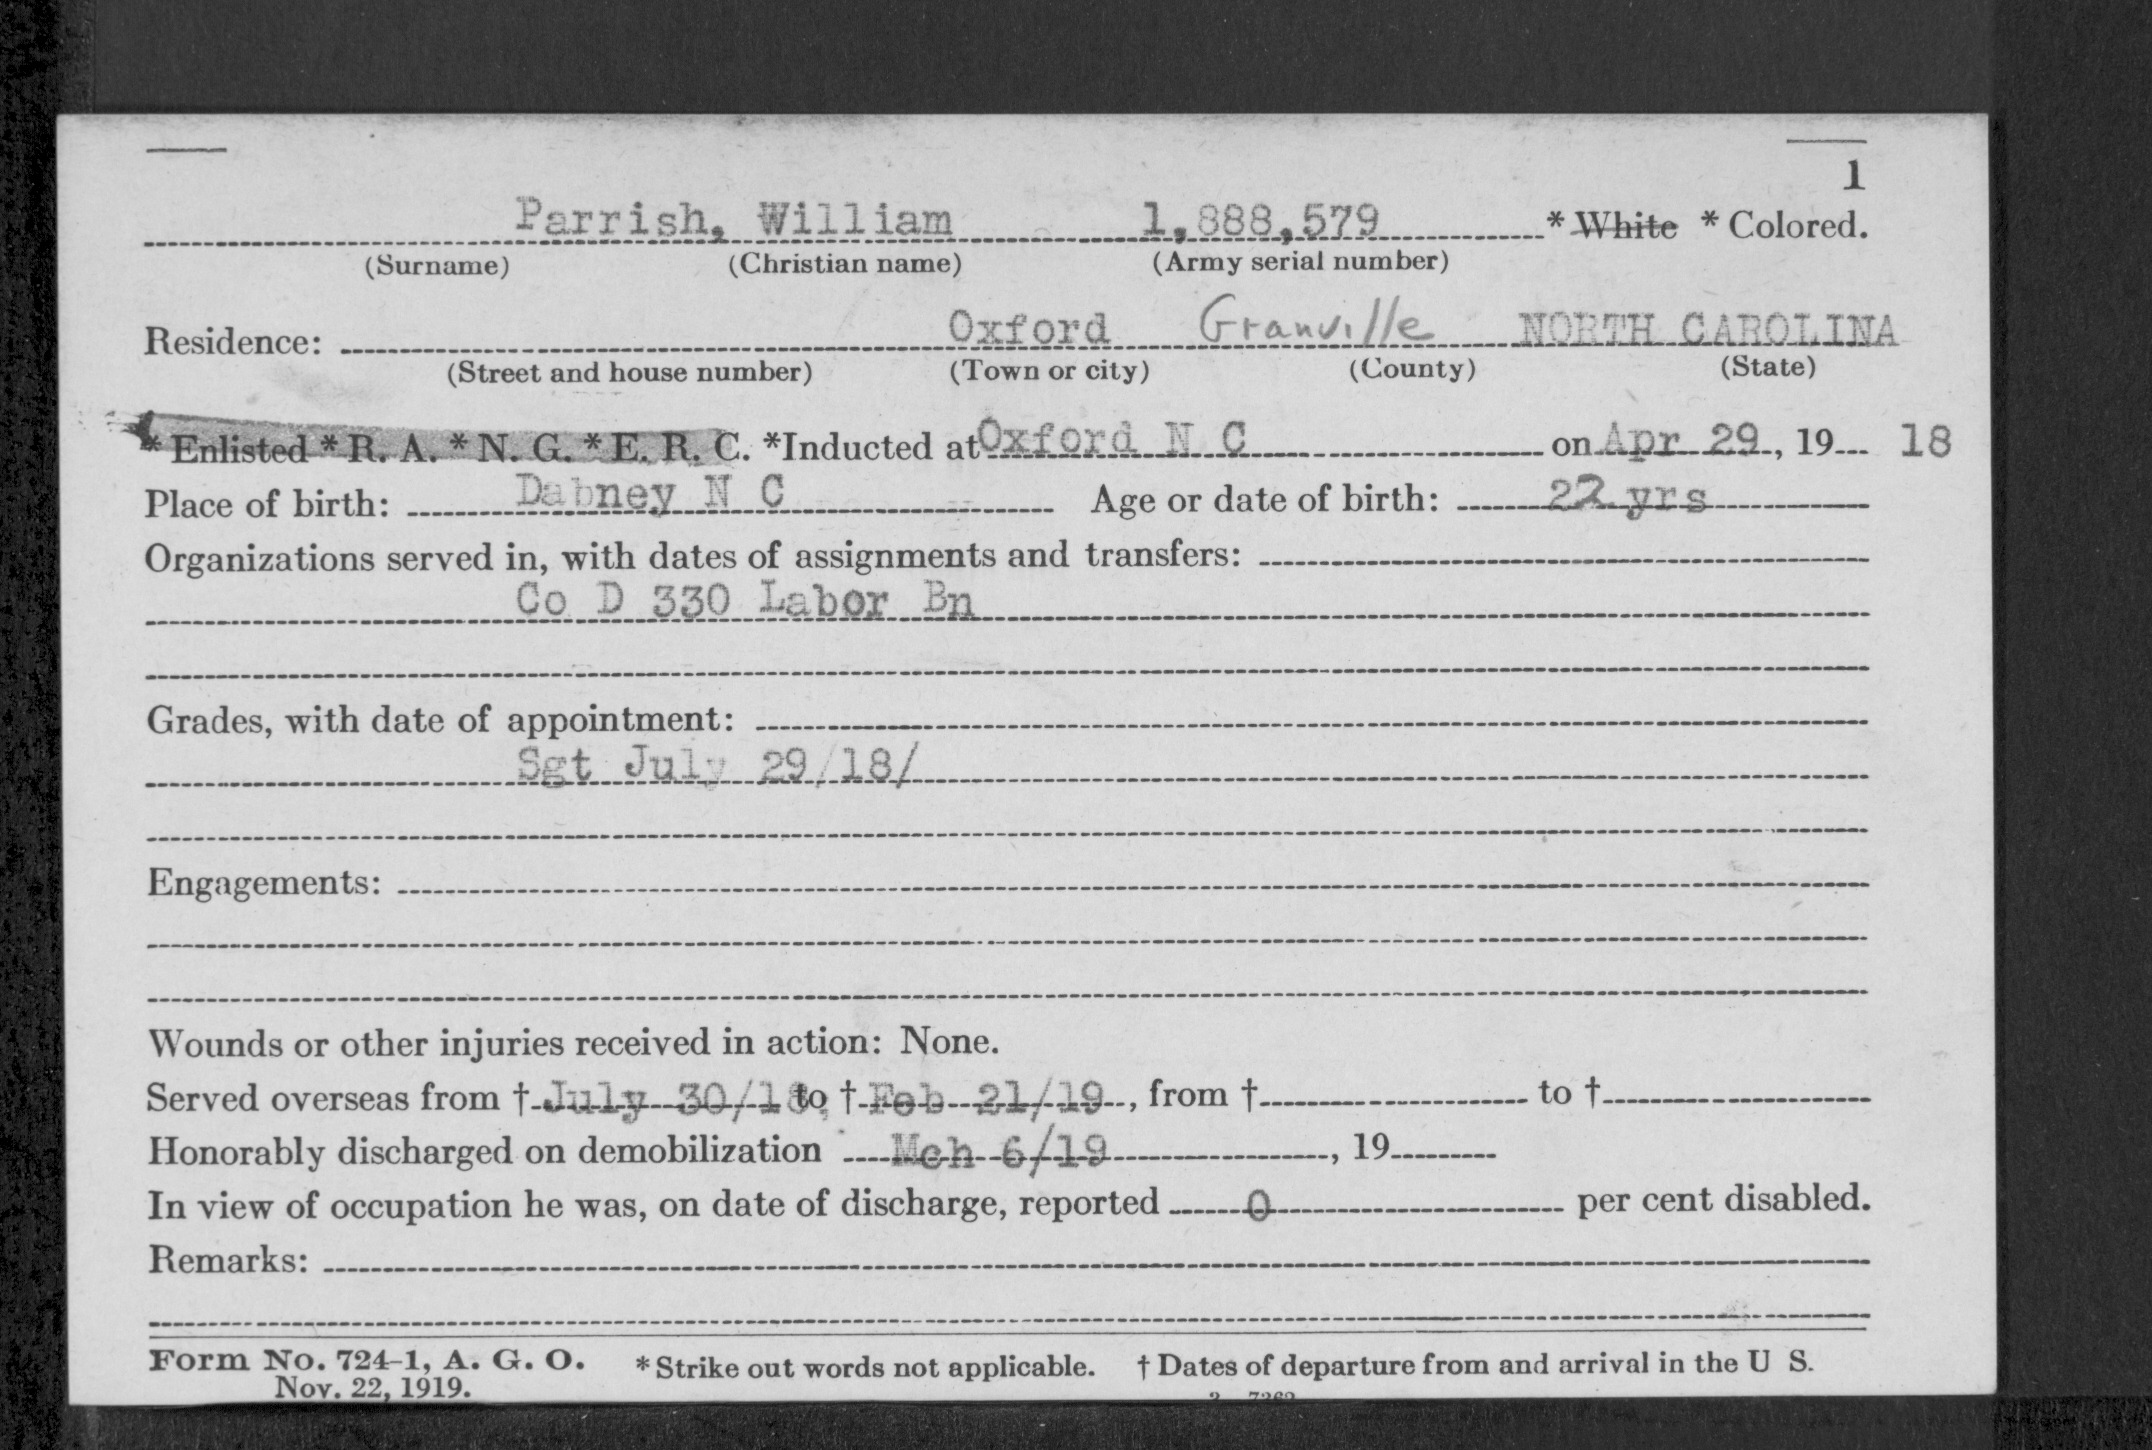 1
Parrish, William 1,888,579 * White * Colored.
(Surname) (Christian name) (Army serial number)
Residence: Oxford Granville NORTH CAROLINA
(Street and house number) (Town or city) (County) (State)
* Enlisted * R. A. * N. G. * E. R. C. *Inducted at Oxford N C on Apr 29, 19 18
Place of birth: Dabney N C Age or date of birth: 22 yrs
Organizations served in, with dates of assignments and transfers:
Co D 330 Labor Bn
Grades, with date of appointment:
Sgt July 29/18/
Engagements:
Wounds or other injuries received in action: None.
Served overseas from † July 30/18, to † Feb 21/19, from † to †
Honorably discharged on demobilization Mch 6/19, 19
In view of occupation he was, on date of discharge, reported 0 per cent disabled.
Remarks:
Form No. 724-1, A. G. O. * Strike out words not applicable. † Dates of departure from and arrival in the U S.
Nov. 22, 1919.